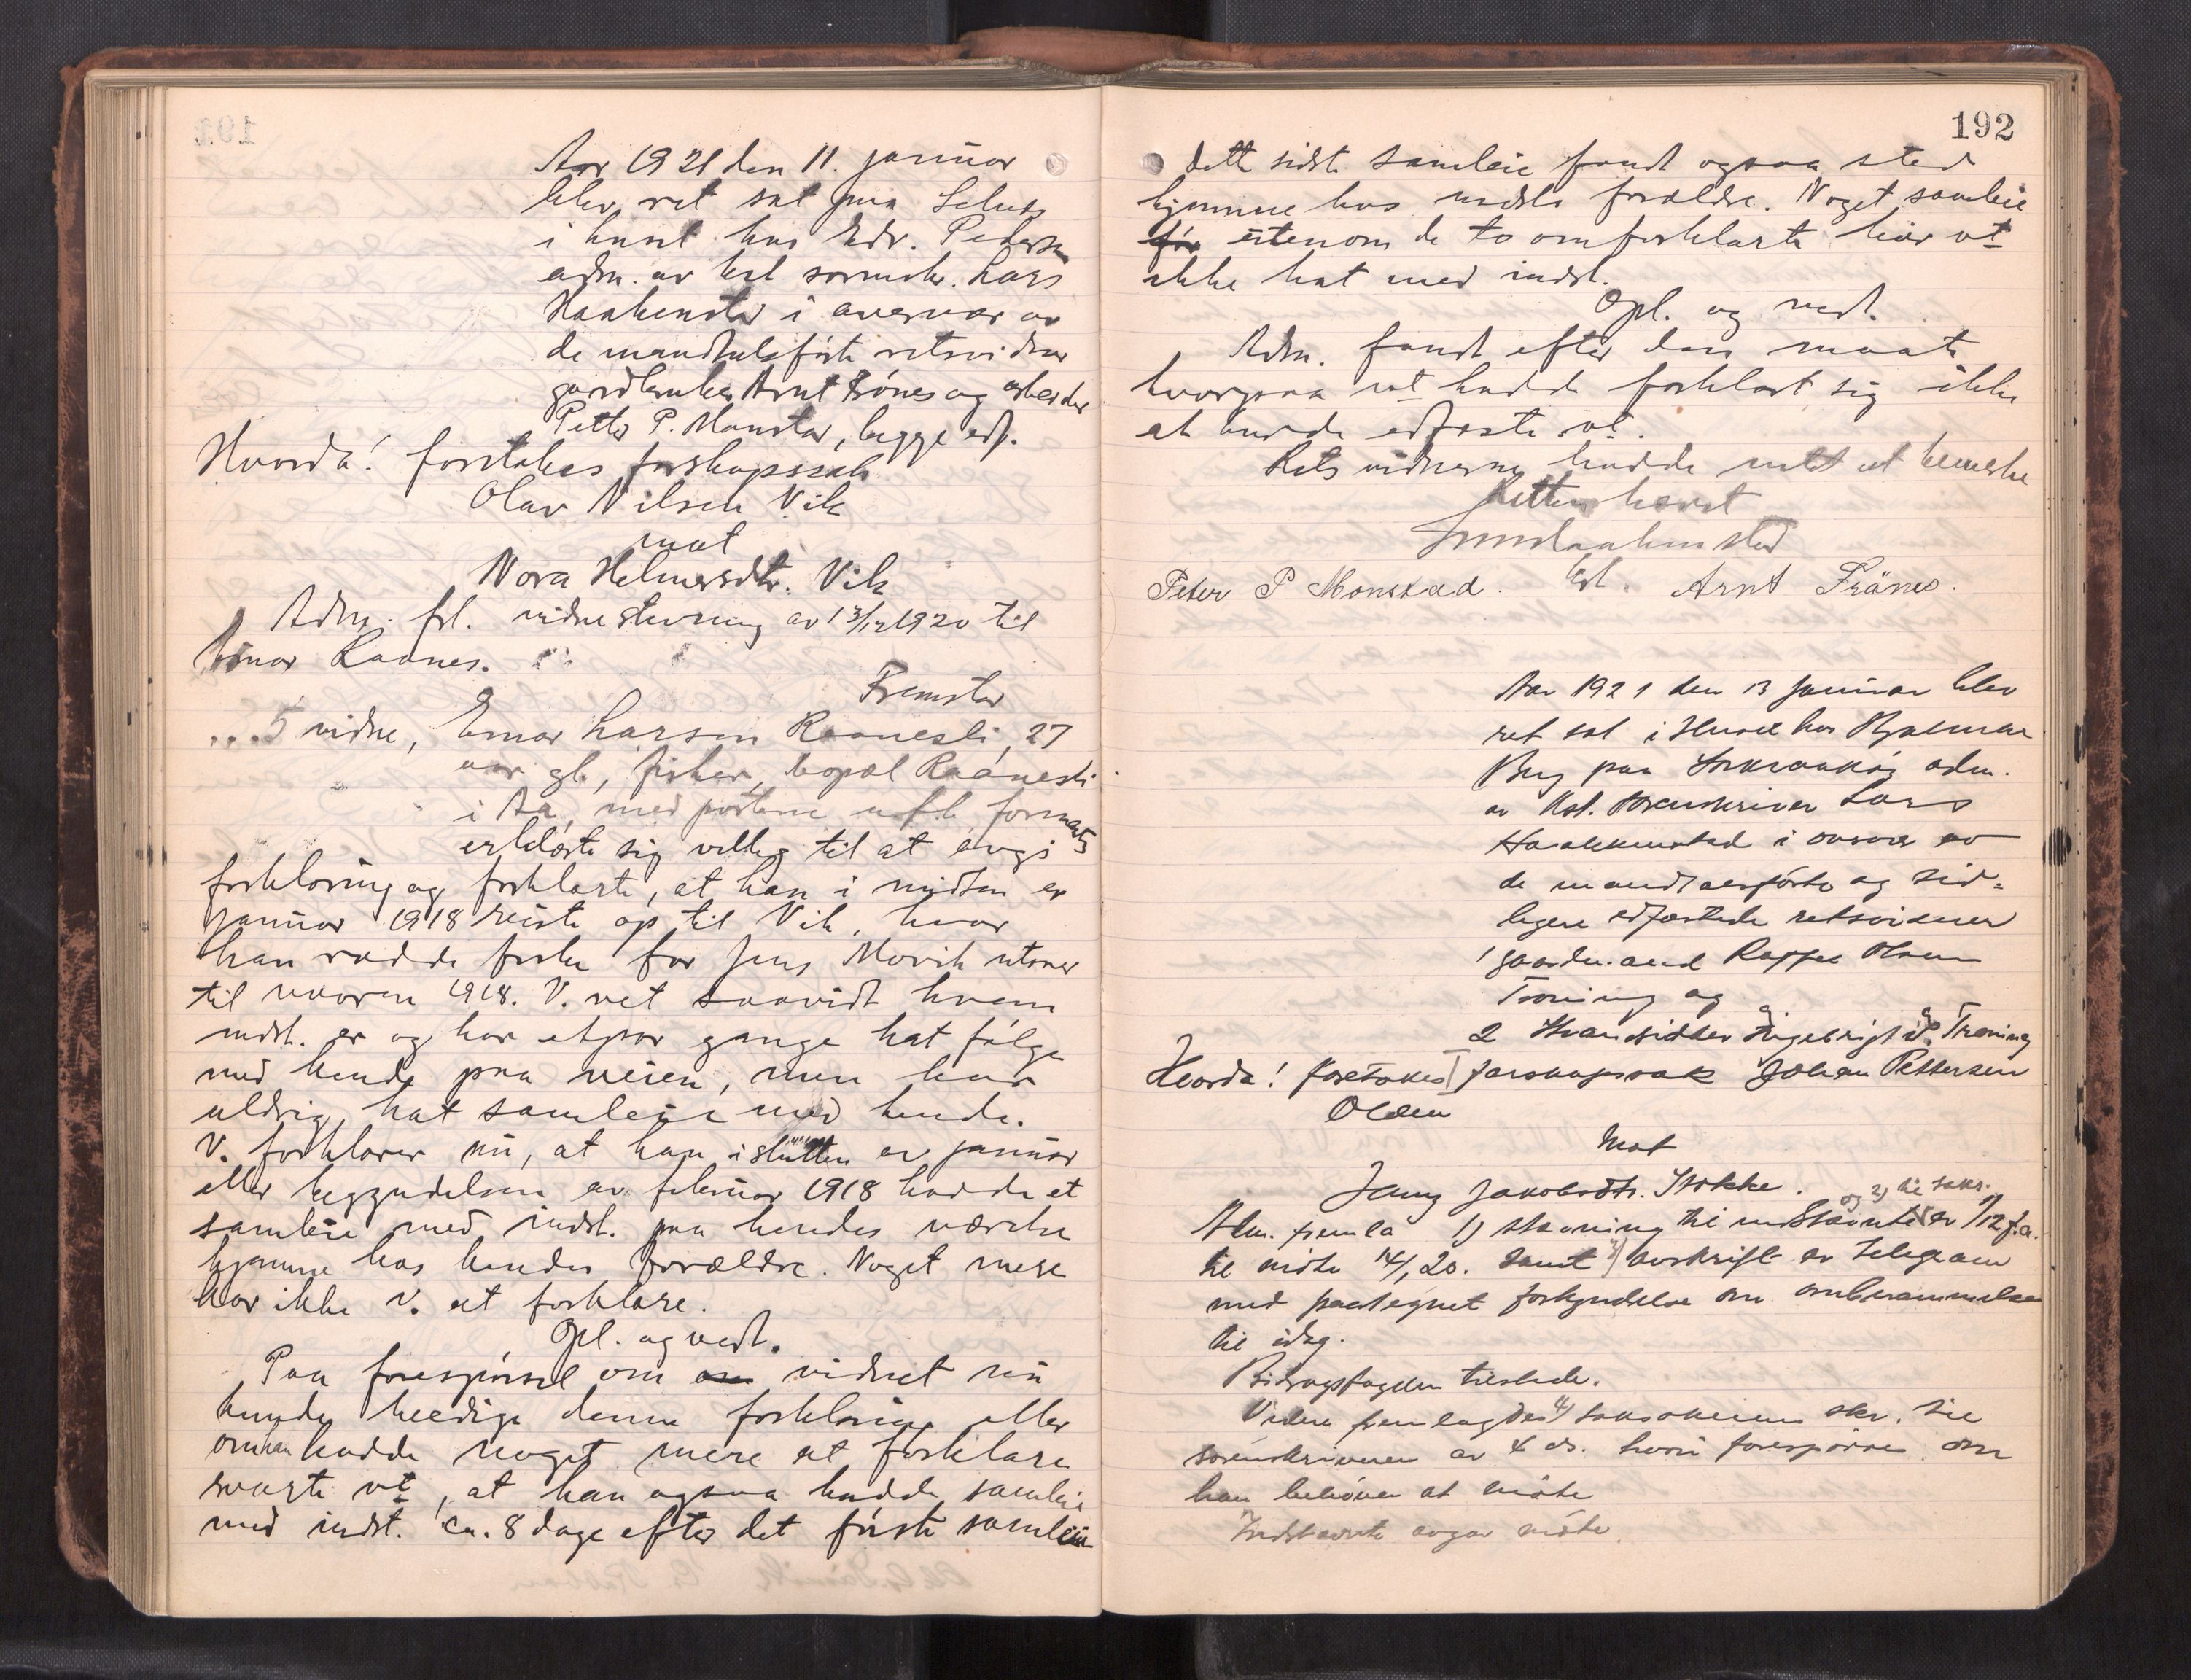 Aar 1921 den 11. januar
blev ret sat paa
i huset hos Edv. Pedersen
adm. av kst sornskr. Lars
Haakenstad i overvær av
de mandtalsförte retsvidner
gardbruker Arnt Frönes og arbeider
Petter P. Monstad, begge edf.
Hvorda! foretokes farskapssak
Olav Nilsen Vik
mot
Nora Helmersdtr. Vik
Adm. frl. vidnestevning av 13/12 1920 til
Einar Raanes.
Fremstod
5 vidne, Einar Larsen Raanesli, 27
aar gl., fisker, bopæl Raanesli
i Aa, med partene u.f.l. formantes
erklærte sig villig til at avgi
forklaring og forklarte, at han i midten av
januar 1918 reiste op til Vik, hvor
han rodde fiske for Jens Movik utover
til vaaren 1918. V. vet saavidt hvem
indst. er og har etpar gange hat følge
med hende paa veien, men har
aldrig hat samleie med hende.
V. forklarer nu, at han i slutten av januar
eller begyndelsen av februar 1918 hadde et
samleie med indst. paa hendes værelse
hjemme hos hendes forældre. Noget mere
har ikke V. at forklare.
Opl. og vedt.
Paa forespörsel om vidnet nu
kunde beedige denne forklaring eller
om han hadde noget mere at forklare
svarte vt, at han ogsaa hadde samleie
med indst. ca. 8 dage efter det förste samleie
192
Dette sidste samleie fandt ogsaa sted
hjemme hos indsts forældre. Noget samleie
för utenom de to omforklarte har vt
ikke hat med indst.
Opl. og vedt.
Adm. fandt efter den maate
hvorpaa vt hadde forklart sig ikke
at burde edfæste vt.
Retsvidnerne hadde intet at bemerke
Retten hævet
Lars Haakenstad
Peter P Monstad. Edf. Arnt Fränes.
Aar 1921 den 13 januar blev
ret sat i Huset hos Hjalmar
Berg paa adm.
av Kst. sorenskriver Lars
Haakenstad i overvær av
de mandtalsförte og tid-
ligere edfæstede retsvidner
1 gaardmand Olsen
Træning og
2 Strandsidder Ingebrigt P. Træning
Hvorda! foretokes farskapssak Johan Pettersen
Olden
Mot
Jenny Jakobsdtr. Stokke.
og 2) til saks.
Adm. fremla 1) stævning til indstævnte av 1/12 f.a.
til möte 14/1 20. samt 3) avskrift av telegram
med paategnet forkyndelse om omberammelse
til idag.
Bidragsfogden tilstede.
Videre fremlagdes 4) saksökerens skr. til
sorenskriveren av 4 ds. hvori forespörres om
han behöver at möte
Indstævnte avgav möte.